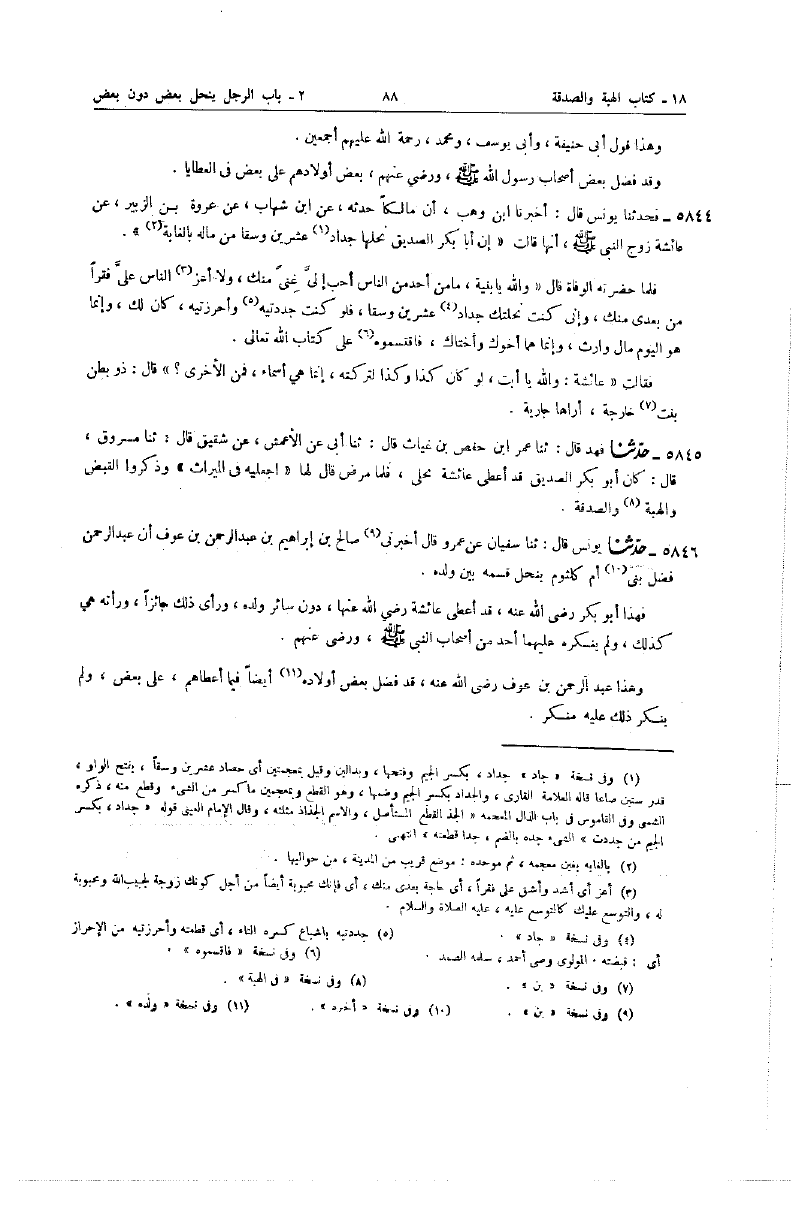 ١٨ - كتاب الهبة والصدقة ٨٨ ٢ - باب الرجل ينحل بعض دون بعض
وهذا قول أبى حنيفة ، وأبى يوسف ، ومحمد ، رحمة الله عليهم أجمعين .
وقد فضل بعض أصحاب رسول الله ﷺ ، ورضي عنهم ، بعض أولادهم على بعض فى العطايا .
٥٨٤٤ - فحدثنا يونس قال : أخبرنا ابن وهب ، أن مالكاً حدثه ، عن ابن شهاب ، عن عروة بن الزبير ، عن
عائشة زوج النبي ﷺ ، أنها قالت « إن أبا بكر الصديق نحلها جداد(١) عشرين وسقا من ماله بالغابة(٢) » .
فلما حضرته الوفاة قال « والله يابنية ، مامن أحد من الناس أحب إلىَّ غِنىً منك ، ولا أعز(٣) الناس علىَّ فقراً
من بعدى منك ، وإنى كنت نحلتك جداد(٤) عشرين وسقا ، فلو كنت جددتيه(٥) وأحرزتيه ، كان لك ، وإنما
هو اليوم مال وارث ، وإنما هما أخوك وأختاك ، فاقتسموه(٦) على كتاب الله تعالى .
فقالت « عائشة : والله يا أبت ، لو كان كذا وكذا لتركته ، إنما هي أسماء ، فمن الأخرى ؟ » قال : ذو بطن
بنت(٧) خارجة ، أراها جارية .
٥٨٤٥ - حدثنا فهد قال : ثنا عمر ابن حفص بن غياث قال : ثنا أبى عن الأعمش ، عن شقيق قال : ثنا مسروق ،
قال : كان أبو بكر الصديق قد أعطى عائشة نحلى ، فلما مرض قال لها « اجعليه فى الميراث » وذكروا القبض
والهبة (٨) والصدقة .
٥٨٤٦ - حدثنا يونس قال : ثنا سفيان عن عمرو قال أخبرنى(٩) صالح بن إبراهيم بن عبدالرحمن بن عوف أن عبدالرحمن
فضل بنى(١٠) أم كلثوم بنحل قسمه بين ولده .
فهذا أبو بكر رضى الله عنه ، قد أعطى عائشة رضي الله عنها ، دون سائر ولده ، ورأى ذلك جائزاً ، ورأته هي
كذلك ، ولم ينكره عليهما أحد من أصحاب النبي ﷺ ، ورضى عنهم .
وهذا عبد الرحمن بن عوف رضى الله عنه ، قد فضل بعض أولاده(١١) أيضاً فيما أعطاهم ، على بعض ، ولم
ينكر ذلك عليه منكر .
(١) وفى نسخة « جاد » جداد ، بكسر الجيم وفتحها ، وبدالين وقيل بمعجمتين أى حصاد عشرين وسقاً ، بفتح الواو ،
قدر ستين صاعا قاله العلامة القارى ، والجداد بكسر الجيم وضمها ، وهو القطع وبمعجمين ما كسر من الشىء وقطع منه ، ذكره
الشمى وفى القاموس فى باب الذال المعجمه « الجذ القطع المستأصل ، والاسم الجذاذ مثلثه ، وقال الإمام العينى قوله « جداد ، بكسر
الجيم من جددت » الشىء جده بالضم ، جدا قطعته » انتهى .
(٢) بالغابه بغين معجمه ، ثم موحده : موضع قريب من المدينة ، من حواليها .
(٣) أعز أى أشد وأشق على فقراً ، أى حاجة بعدى منك ، أى فإنك محبوبة أيضاً من أجل كونك زوجة لحبيب الله ومحبوبة
له ، والتوسع عليك كالتوسع عليه ، عليه الصلاة والسلام .
(٤) وفى نسخة « جاد » . (٥) جددتيه باشباع كسره التاء ، أى قطعته وأحرزتيه من الإحراز
أى : قبضته . المولوى وصى أحمد ، سلمه الصمد . (٦) وفى نسخة « فاقسموه » .
(٧) وفى نسخة « بن » . (٨) وفى نسخة « فى الهبة » .
(٩) وفى نسخة « بن » . (١٠) وفى نسخة « أخبره » . (١١) وفى نسخة « ولده » .